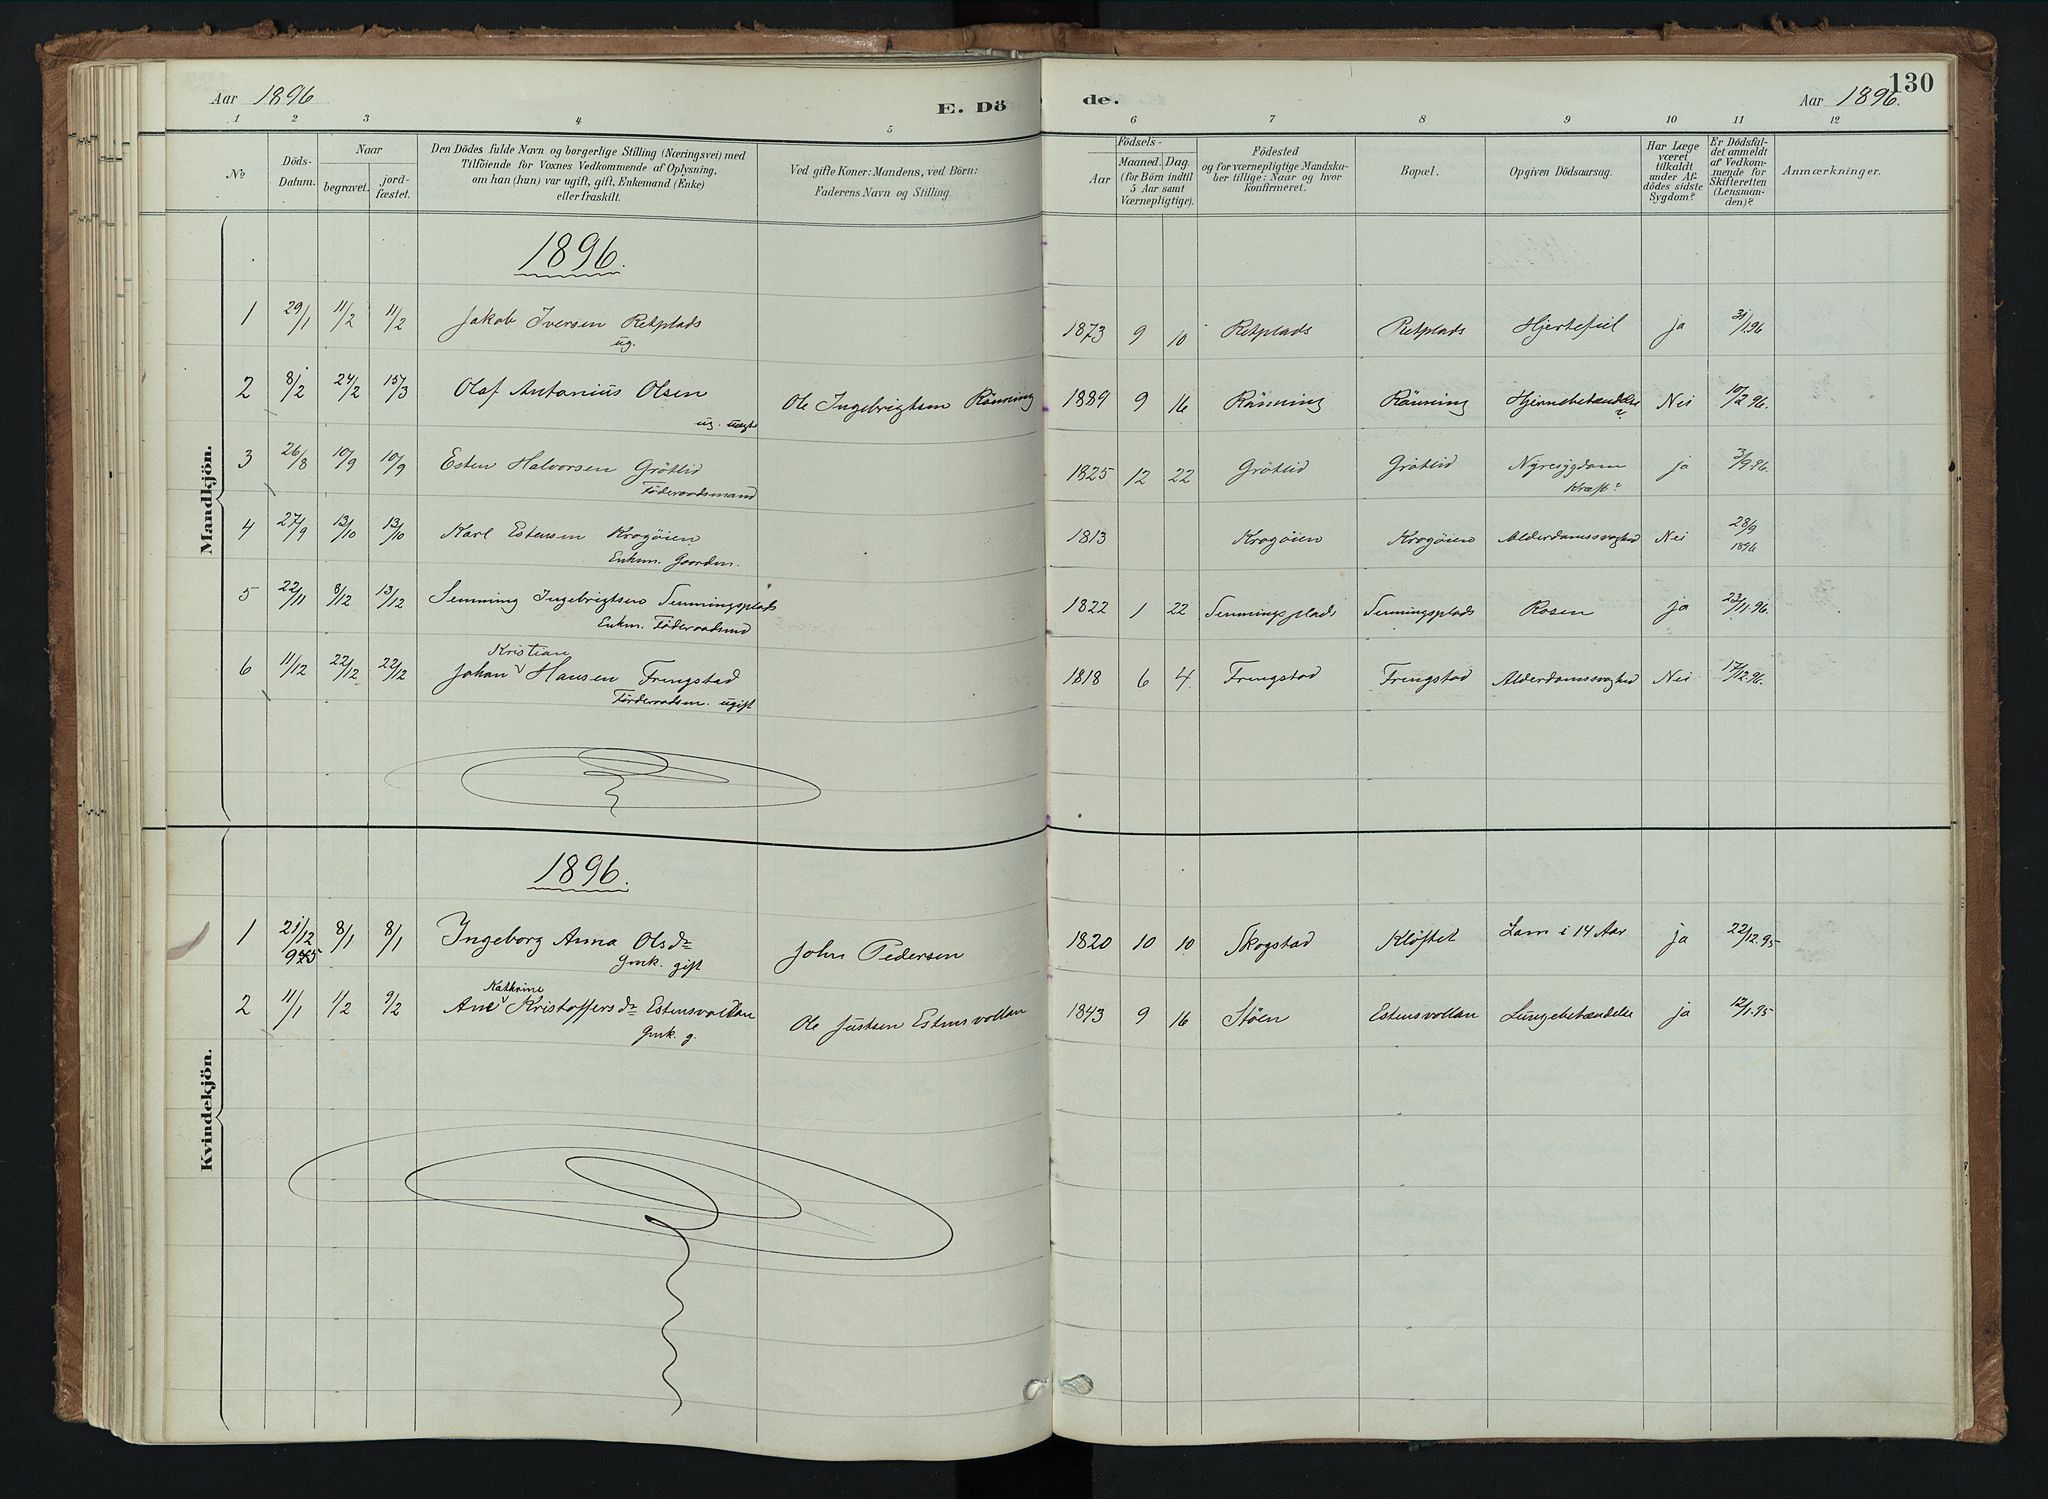 Aar 1896 E. Dö de. Aar 1896. 130
1 2 3 4 5 6 7 8 9 10 11 12
No.
Döds-Datum.
Naar
begravet.
jord-fæstet.
Den Dödes fulde Navn og borgerlige Stilling (Næringsvei) med
Tilföiende for Voxnes Vedkommende af Oplysning,
om han (hun) var ugift, gift, Enkemand (Enke)
eller fraskilt.
Ved gifte Koner: Mandens, ved Börn:
Faderens Navn og Stilling.
Födsels-
Aar
Maaned. Dag.
(for Börn indtil
5 Aar samt
Værnepligtige).
Födested
og for værnepligtige Mandska-
ber tillige: Naar og hvor
konfirmeret.
Bopæl.
Opgiven Dödsaarsag.
Har Læge
været
tilkaldt
under Af-
dödes sidste
Sygdom?
Er Dödsfal-
det anmeldt
af Vedkom-
mende for
Skifteretten
(Lensman-
den)?
Anmærkninger.
Mandkjön.
1896.
1 29/1 11/2 11/2 Jakob Iversen Retplads 1873 9 10 Retplads Retplads Hjertefeil ja 31/1 96
ug.
2 8/2 24/2 15/3 Olaf Antonius Olsen Ole Ingebrigtsen Rönning 1889 9 16 Rönning Rönning Hjernebetændelse Nei 10/2 96.
ug. ?
3 26/8 10/9 10/9 Esten Halvorsen Grötlid 1825 12 22 Grötlid Grötlid Nyresygdom ja 3/9 96.
Föderaadsmand Kræft?
4 27/9 13/10 13/10 Karl Estensen Krogöien 1813 Krogöien Krogöien Alderdomssvaghed Nei 28/9 1896
Enkm. Gaardm.
5 22/11 8/12 13/12 Semming Ingebrigtsen Semmingsplads 1822 1 22 Semmingsplads Semmingsplads Rosen ja 23/11.96.
Enkm. Föderaadsmd
Kristian
6 11/12 22/12 22/12 Johan Hansen Frengstad 1818 6 4 Frengstad Frengstad Alderdomssvaghed Nei 17/12.96.
Föderaadsm. ugift
Kvindekjön.
1896.
1 21/12 95 8/1 8/1 Ingeborg Anna Olsdr John Pedersen 1820 10 10 Skogstad Klöftet Lam i 14 Aar ja 22/12.95
Gmk. gift
Kathrine
2 11/1 1/2 9/2 Ane Kristoffersdr Estensvollan Ole Justsen Estensvollan 1843 9 16 Stöen Estensvollan Lungebetændelse ja 12/1.95
Gmk. g.